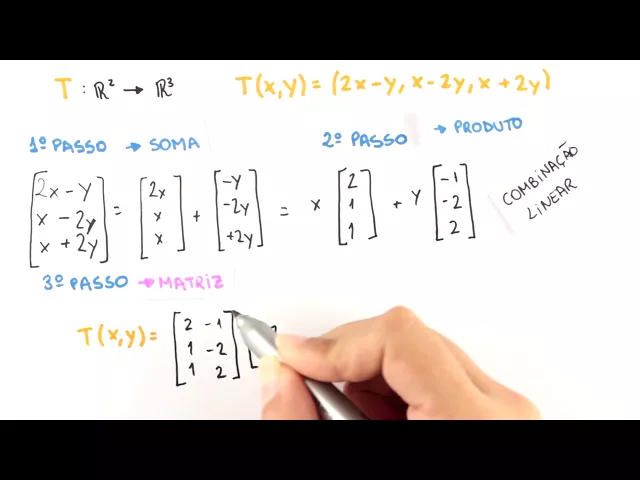 T : ℝ² → ℝ³ T(x,y) = (2x-y, x-2y, x+2y)
1º PASSO → SOMA 2º PASSO → PRODUTO
[2x - y] = [2x] + [-y] = x [2] + y [-1]
[x - 2y] [x] [-2y] [1] [-2]
[x + 2y] [x] [+2y] [1] [2]
COMBINAÇÃO
LINEAR
3º PASSO → MATRIZ
T(x,y) = [2 -1]
[1 -2]
[1 2]